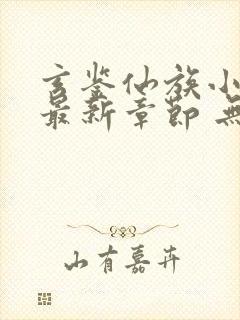 玄鉴仙族小
最新章节 无
山有嘉卉